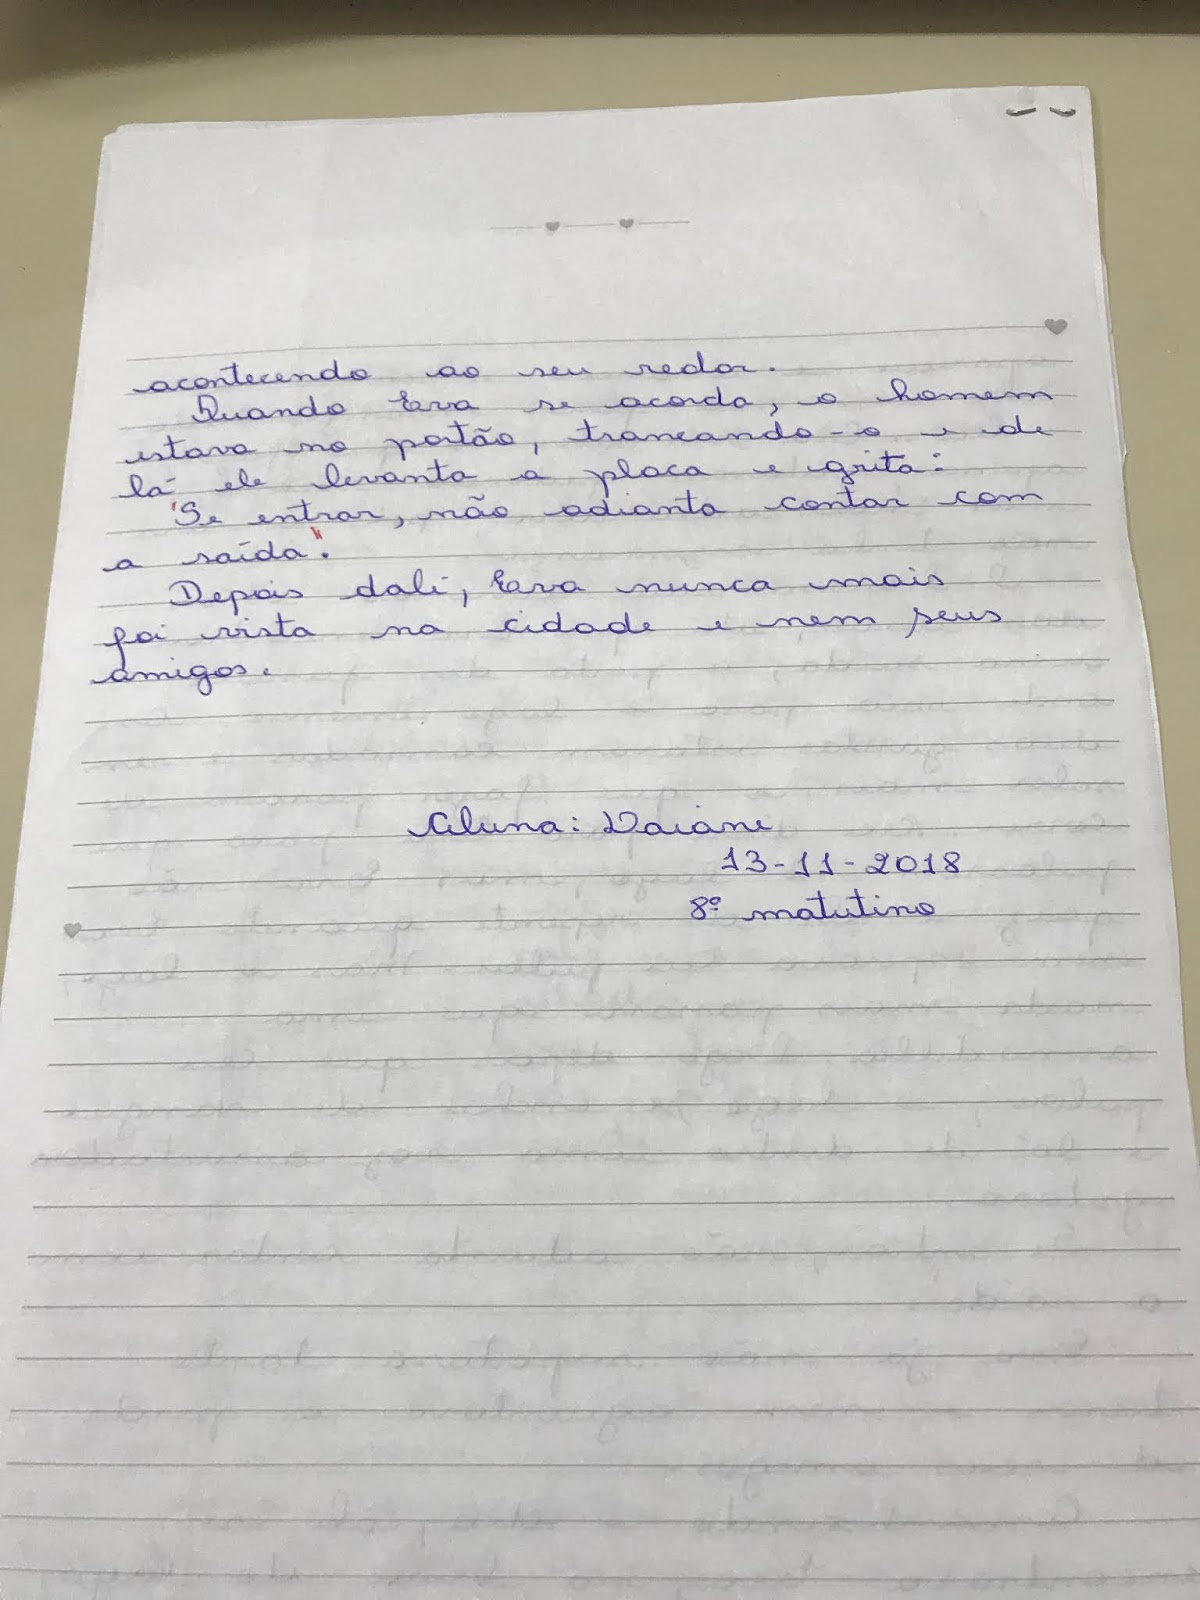 acontecendo ao seu redor.
Quando Eva se acorda, o homem
estava no portão, trancando-o e de
lá ele levanta a placa e grita:
"Se entrar, não adianta contar com
a saída".
Depois dali, Eva nunca mais
foi vista na cidade e nem seus
amigos.
Aluna: Daiane
13-11-2018
8º matutino